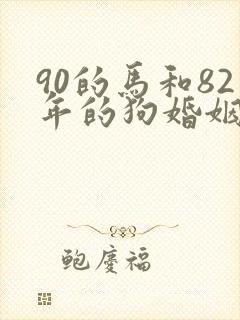 90的馬和82
年的狗婚姻
鮑慶福